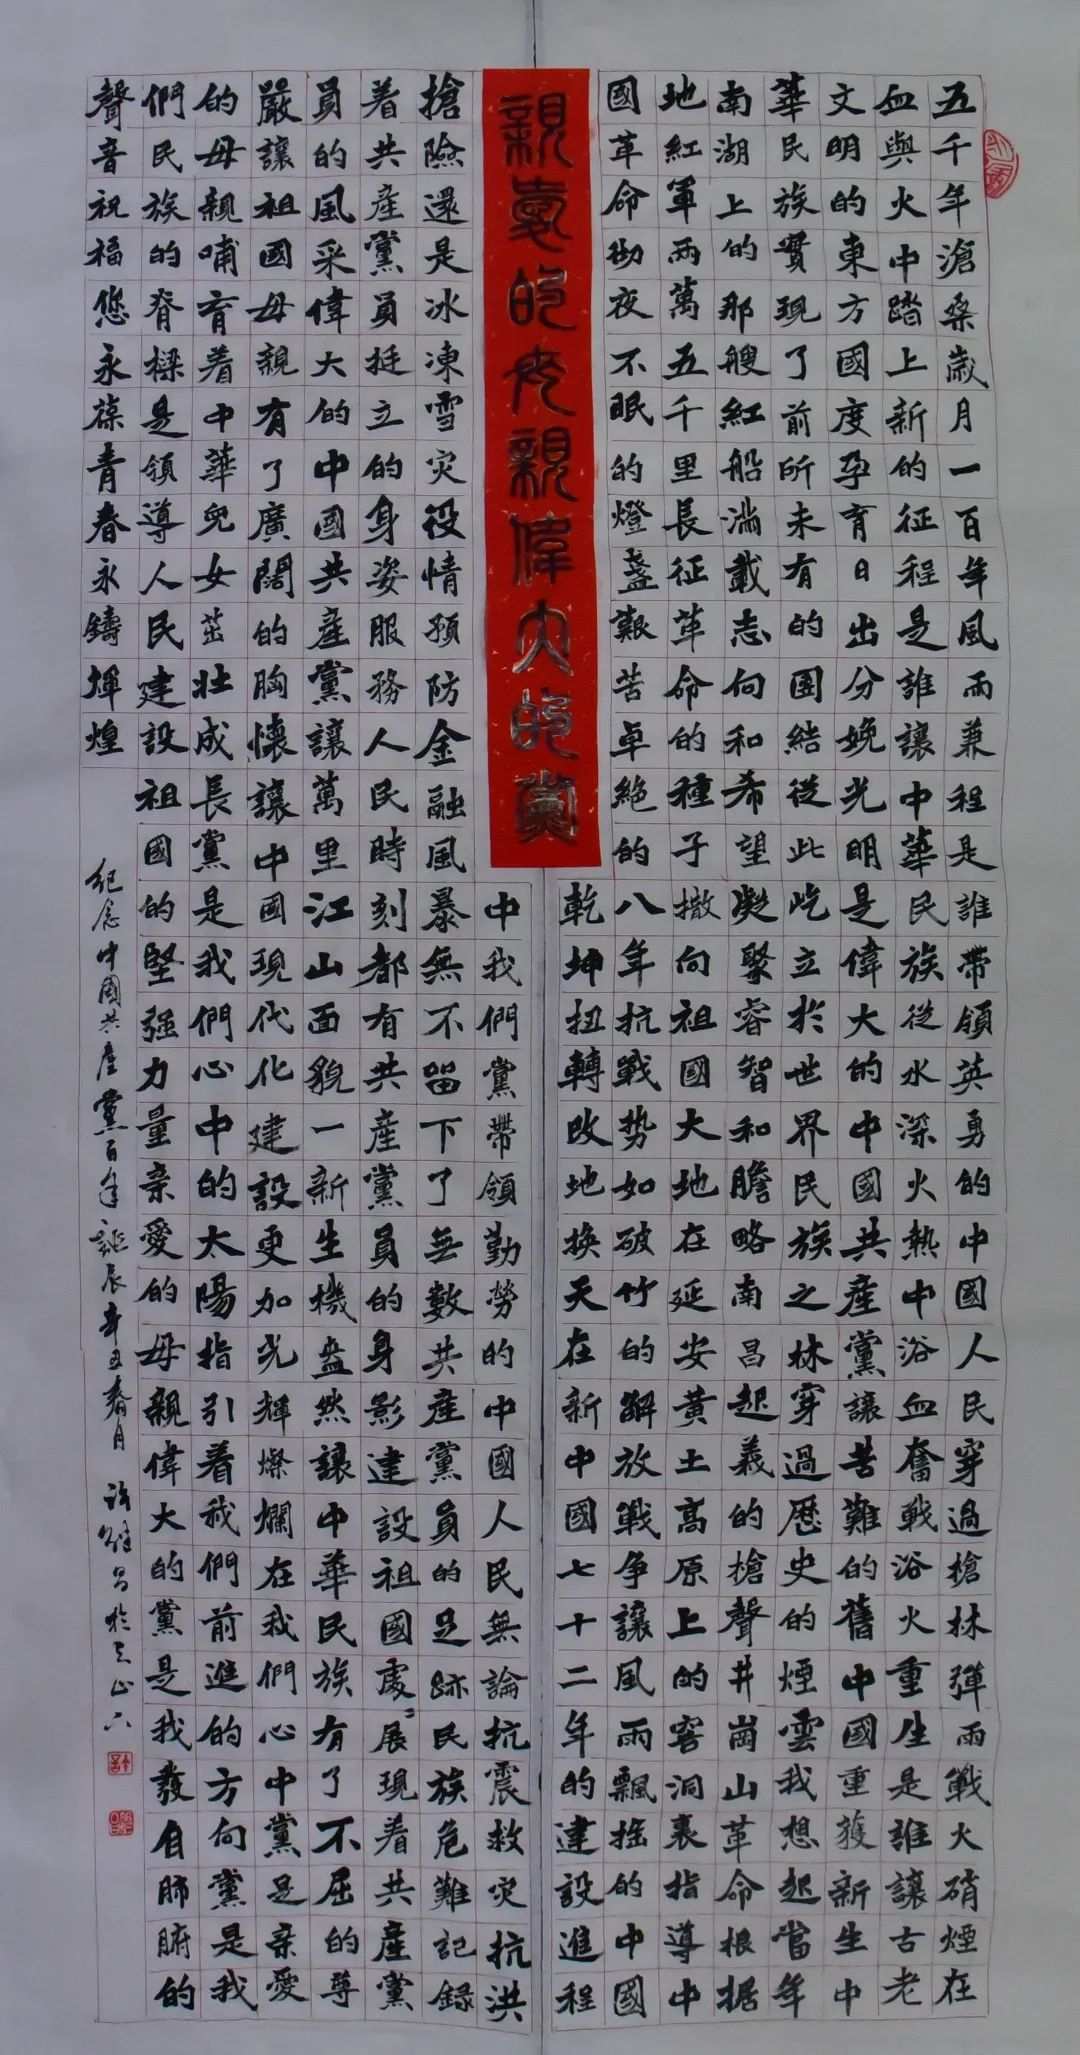 五千年滄桑歲月一百年風雨兼程是誰帶領英勇的中國人民穿過槍林彈雨戰火硝煙在
血與火中踏上新的征程是誰讓中華民族從水深火熱中浴血奮戰浴火重生是誰讓古老
文明的東方國度孕育日出分娩光明是偉大的中國共產黨讓苦難的舊中國重獲新生中
華民族實現了前所未有的團結從此屹立於世界民族之林穿過歷史的煙雲我想起當年
南湖上的那艘紅船滿載志向和希望凝聚睿智和膽略南昌起義的槍聲井崗山革命根据
地紅軍兩萬五千里長征革命的種子撒向祖國大地在延安黃土高原上的窰洞裏指導中
國革命徹夜不眠的燈盞艱苦卓絕的八年抗戰势如破竹的解放戰争讓風雨飄摇的中國
乾坤扭轉改地換天在新中國七十二年的建設進程
親愛的母親偉大的黨
中我們黨帶領勤勞的中國人民無論抗震救灾抗洪
搶險還是冰凍雪灾役情預防金融風暴無不留下了無數共產黨員的足跡民族危難記録
着共產黨員挺立的身姿服務人民時刻都有共產黨員的身影建設祖國處〻展現着共產黨
員的風采偉大的中國共產黨讓萬里江山面貌一新生機盎然讓中華民族有了不屈的尊
嚴讓祖國母親有了廣闊的胸懷讓中國現代化建設更加光輝燦爛在我們心中黨是亲愛
的母親哺育着中華兒女茁壯成長黨是我們心中的太陽指引着我們前進的方向黨是我
們民族的脊樑是領導人民建設祖國的堅强力量亲愛的母親偉大的黨是我發自肺腑的
聲音祝福您永葆青春永鑄輝煌
紀念中國共產黨百年誕辰辛丑春月